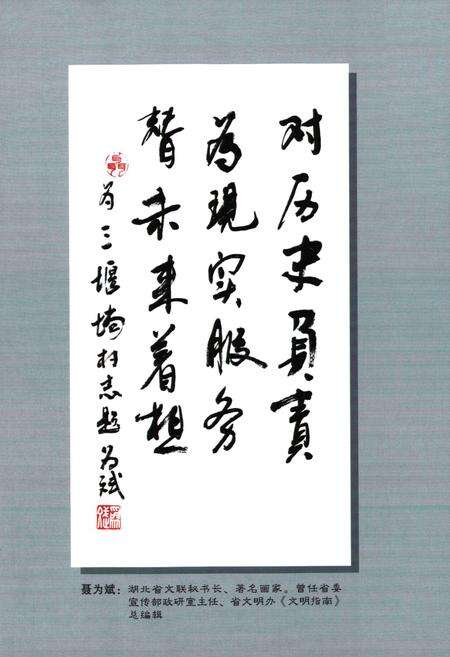 对历史负责
为现实服务
替未来着想
为三堰埫村志题 为斌
聂为斌：湖北省文联秘书长、著名画家。曾任省委
宣传部政研室主任、省文明办《文明指南》
总编辑